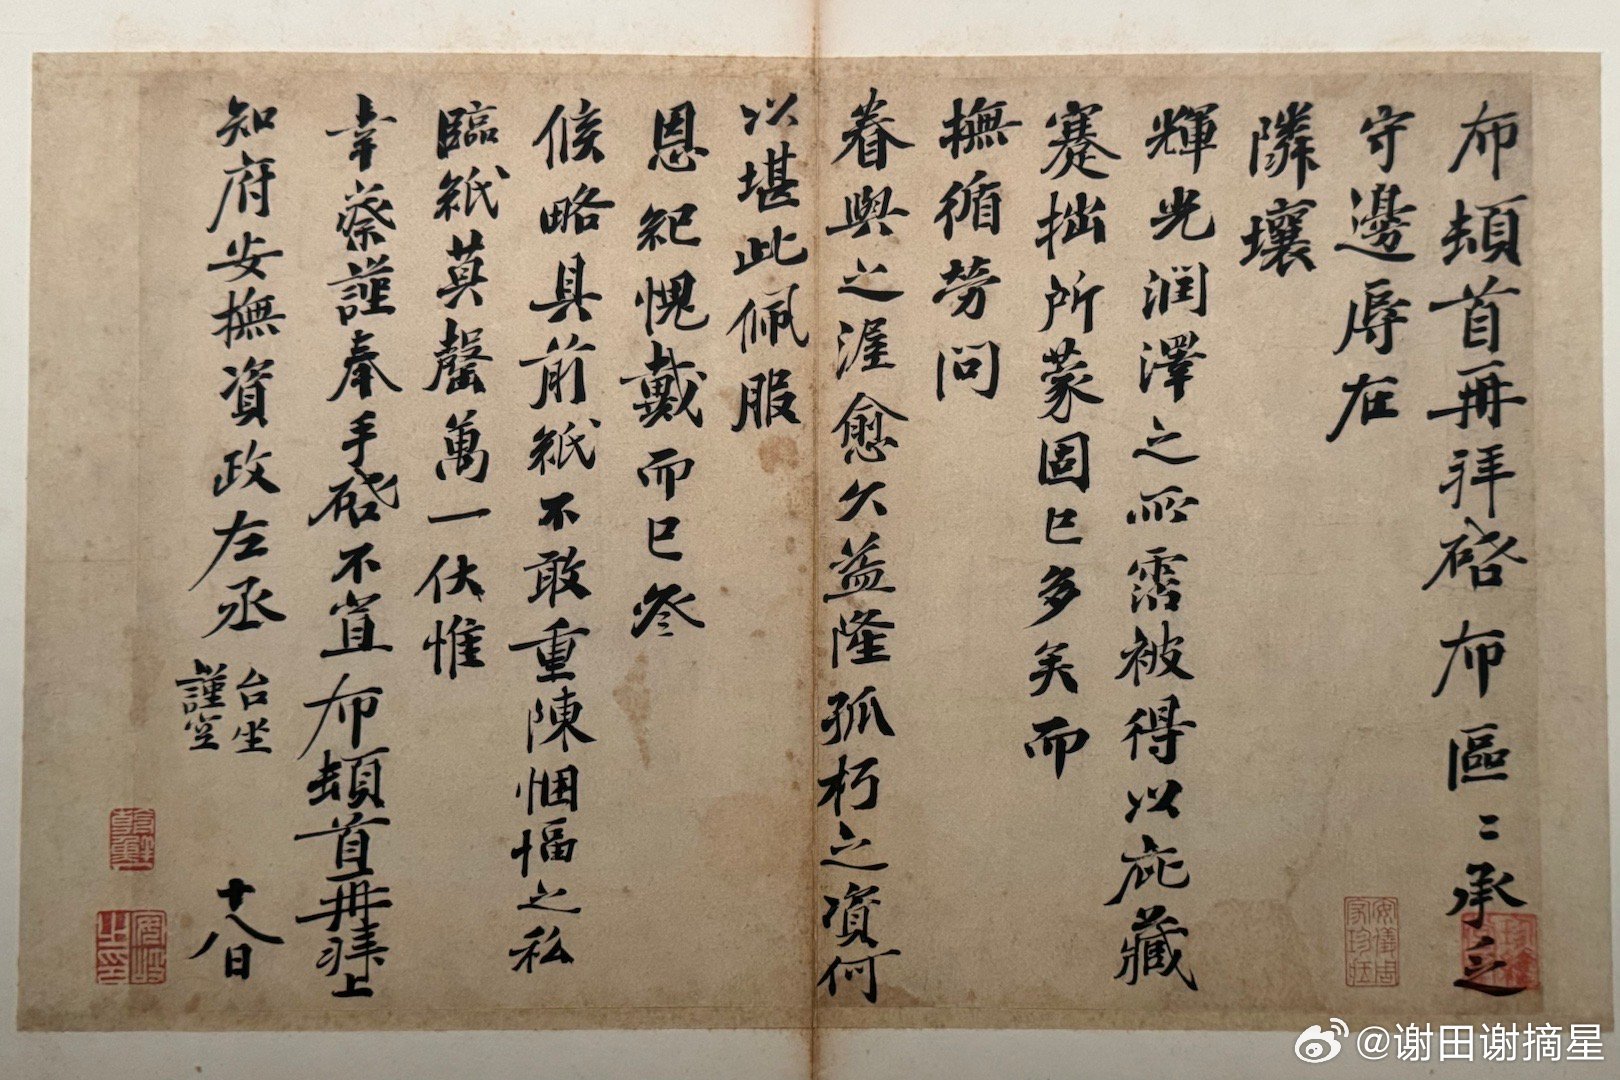 布頓首再拜啓布區〻承乏
守邊辱在
隣壤
輝光潤澤之所霑被得以庇藏
蹇拙所蒙固已多矣而
撫循勞問
眷與之渥愈久益隆孤朽之資何
以堪此佩服
恩紀愧戴而已冬
候略具前紙不敢重陳悃愊之私
臨紙莫罄萬一伏惟
幸察謹奉手啓不宣布頓首再拜上
知府安撫資政左丞台坐
謹空
十八日
安儀周家珍藏
@谢田谢摘星